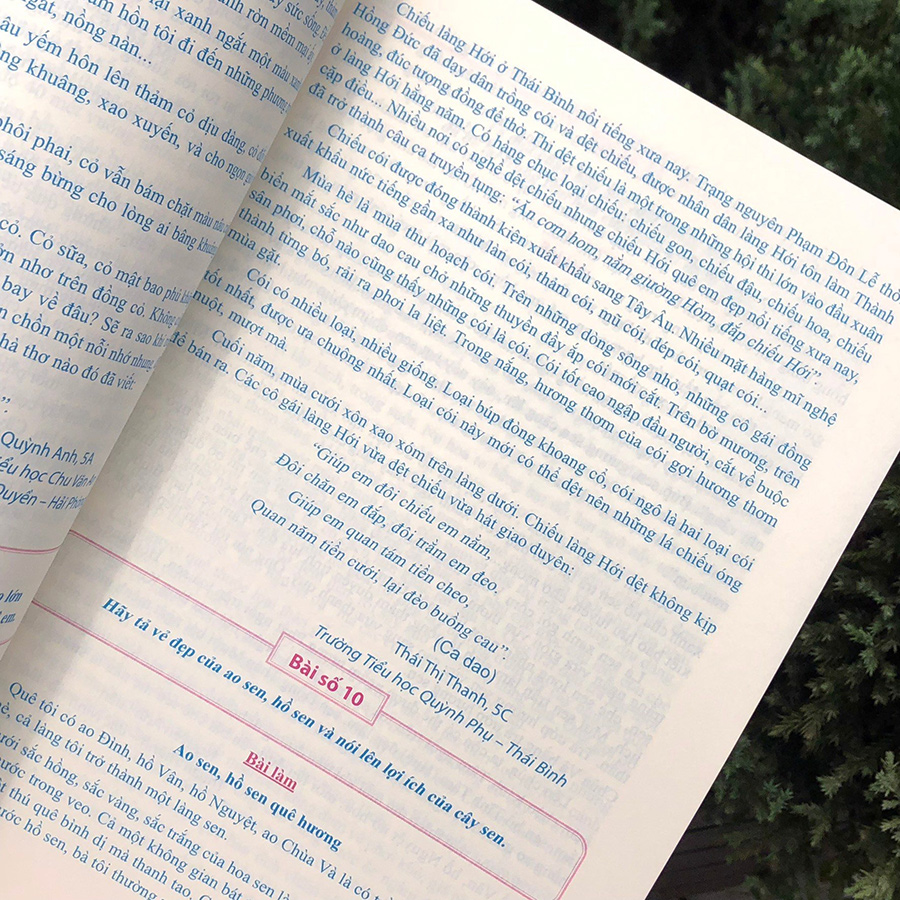 ại xanh ngắt một màu xanh
ầm hồn tôi đi đến những phương
ngất, nồng nàn...
âu yếm hôn lên thảm cỏ dịu dàng, cỏ
khuâng, xao xuyến, và cho ngọn
phôi phai, cỏ vẫn bám chặt màu
sáng bừng cho lòng ai bâng khuâng
cỏ. Cỏ sữa, cỏ mật bao phủ
nhơ trên đồng cỏ. Không
bay về đâu? Sẽ ra sao khi
chồn một nỗi nhớ nhung
hà thơ nào đó đã viết:
”.
Quỳnh Anh, 5A
iểu học Chu Văn An
Quyền – Hải Phòng
lớn
em.
Chiếu làng Hới ở Thái Bình nổi tiếng xưa nay. Trạng nguyên Phạm Đôn Lễ thờ
Hồng Đức đã dạy dân trồng cói và dệt chiếu, được nhân dân làng Hới tôn làm Thành
hoàng, đúc tượng đồng để thờ. Thi dệt chiếu là một trong những hội thi lớn vào đầu xuân
ở làng Hới hằng năm. Có hàng chục loại chiếu: chiếu gon, chiếu đậu, chiếu hoa, chiếu
cạp điều... Nhiều nơi có nghề dệt chiếu nhưng chiếu Hới quê em đẹp nổi tiếng xưa nay,
đã trở thành câu ca truyền tụng: “Ăn cơm hom, nằm giường Hòm, đắp chiếu Hới”.
Chiếu cói được đóng thành kiện xuất khẩu sang Tây Âu. Nhiều mặt hàng mĩ nghệ
xuất khẩu nức tiếng gần xa như làn cói, thảm cói, mũ cói, dép cói, quạt cói...
Mùa hè là mùa thu hoạch cói. Trên những dòng sông nhỏ, những cô gái đồng
biển mắt sắc như dao cau chở những thuyền đầy ắp cói mới cắt. Trên bờ mương, trên
sân phơi, chỗ nào cũng thấy những cói là cói. Cói tốt cao ngập đầu người, cắt về buộc
thành từng bó, rải ra phơi la liệt. Trong nắng, hương thơm của cói gợi hương thơm
mùa gặt.
Cói có nhiều loại, nhiều giống. Loại búp đòng khoang cổ, cói ngô là hai loại cói
tốt nhất, được ưa chuộng nhất. Loại cói này mới có thể dệt nên những lá chiếu óng
muột, mượt mà.
Cuối năm, mùa cưới xôn xao xóm trên làng dưới. Chiếu làng Hới dệt không kịp
để bán ra. Các cô gái làng Hới vừa dệt chiếu vừa hát giao duyên:
“Giúp em đôi chiếu em nằm,
Đôi chăn em đắp, đôi trằm em đeo.
Giúp em quan tám tiền cheo,
Quan năm tiền cưới, lại đèo buồng cau”.
(Ca dao)
Thái Thị Thanh, 5C
Trường Tiểu học Quỳnh Phụ – Thái Bình
Bài số 10
Hãy tả vẻ đẹp của ao sen, hồ sen và nói lên lợi ích của cây sen.
Bài làm
Ao sen, hồ sen quê hương
Quê tôi có ao Đình, hồ Vân, hồ Nguyệt, ao Chùa Và là có
hè, cả làng tôi trở thành một làng sen.
sắc hồng, sắc vàng, sắc trắng của hoa sen
nước trong veo. Cả một không gian bát
thú quê bình dị mà thanh tao.
hồ sen, bà tôi thường